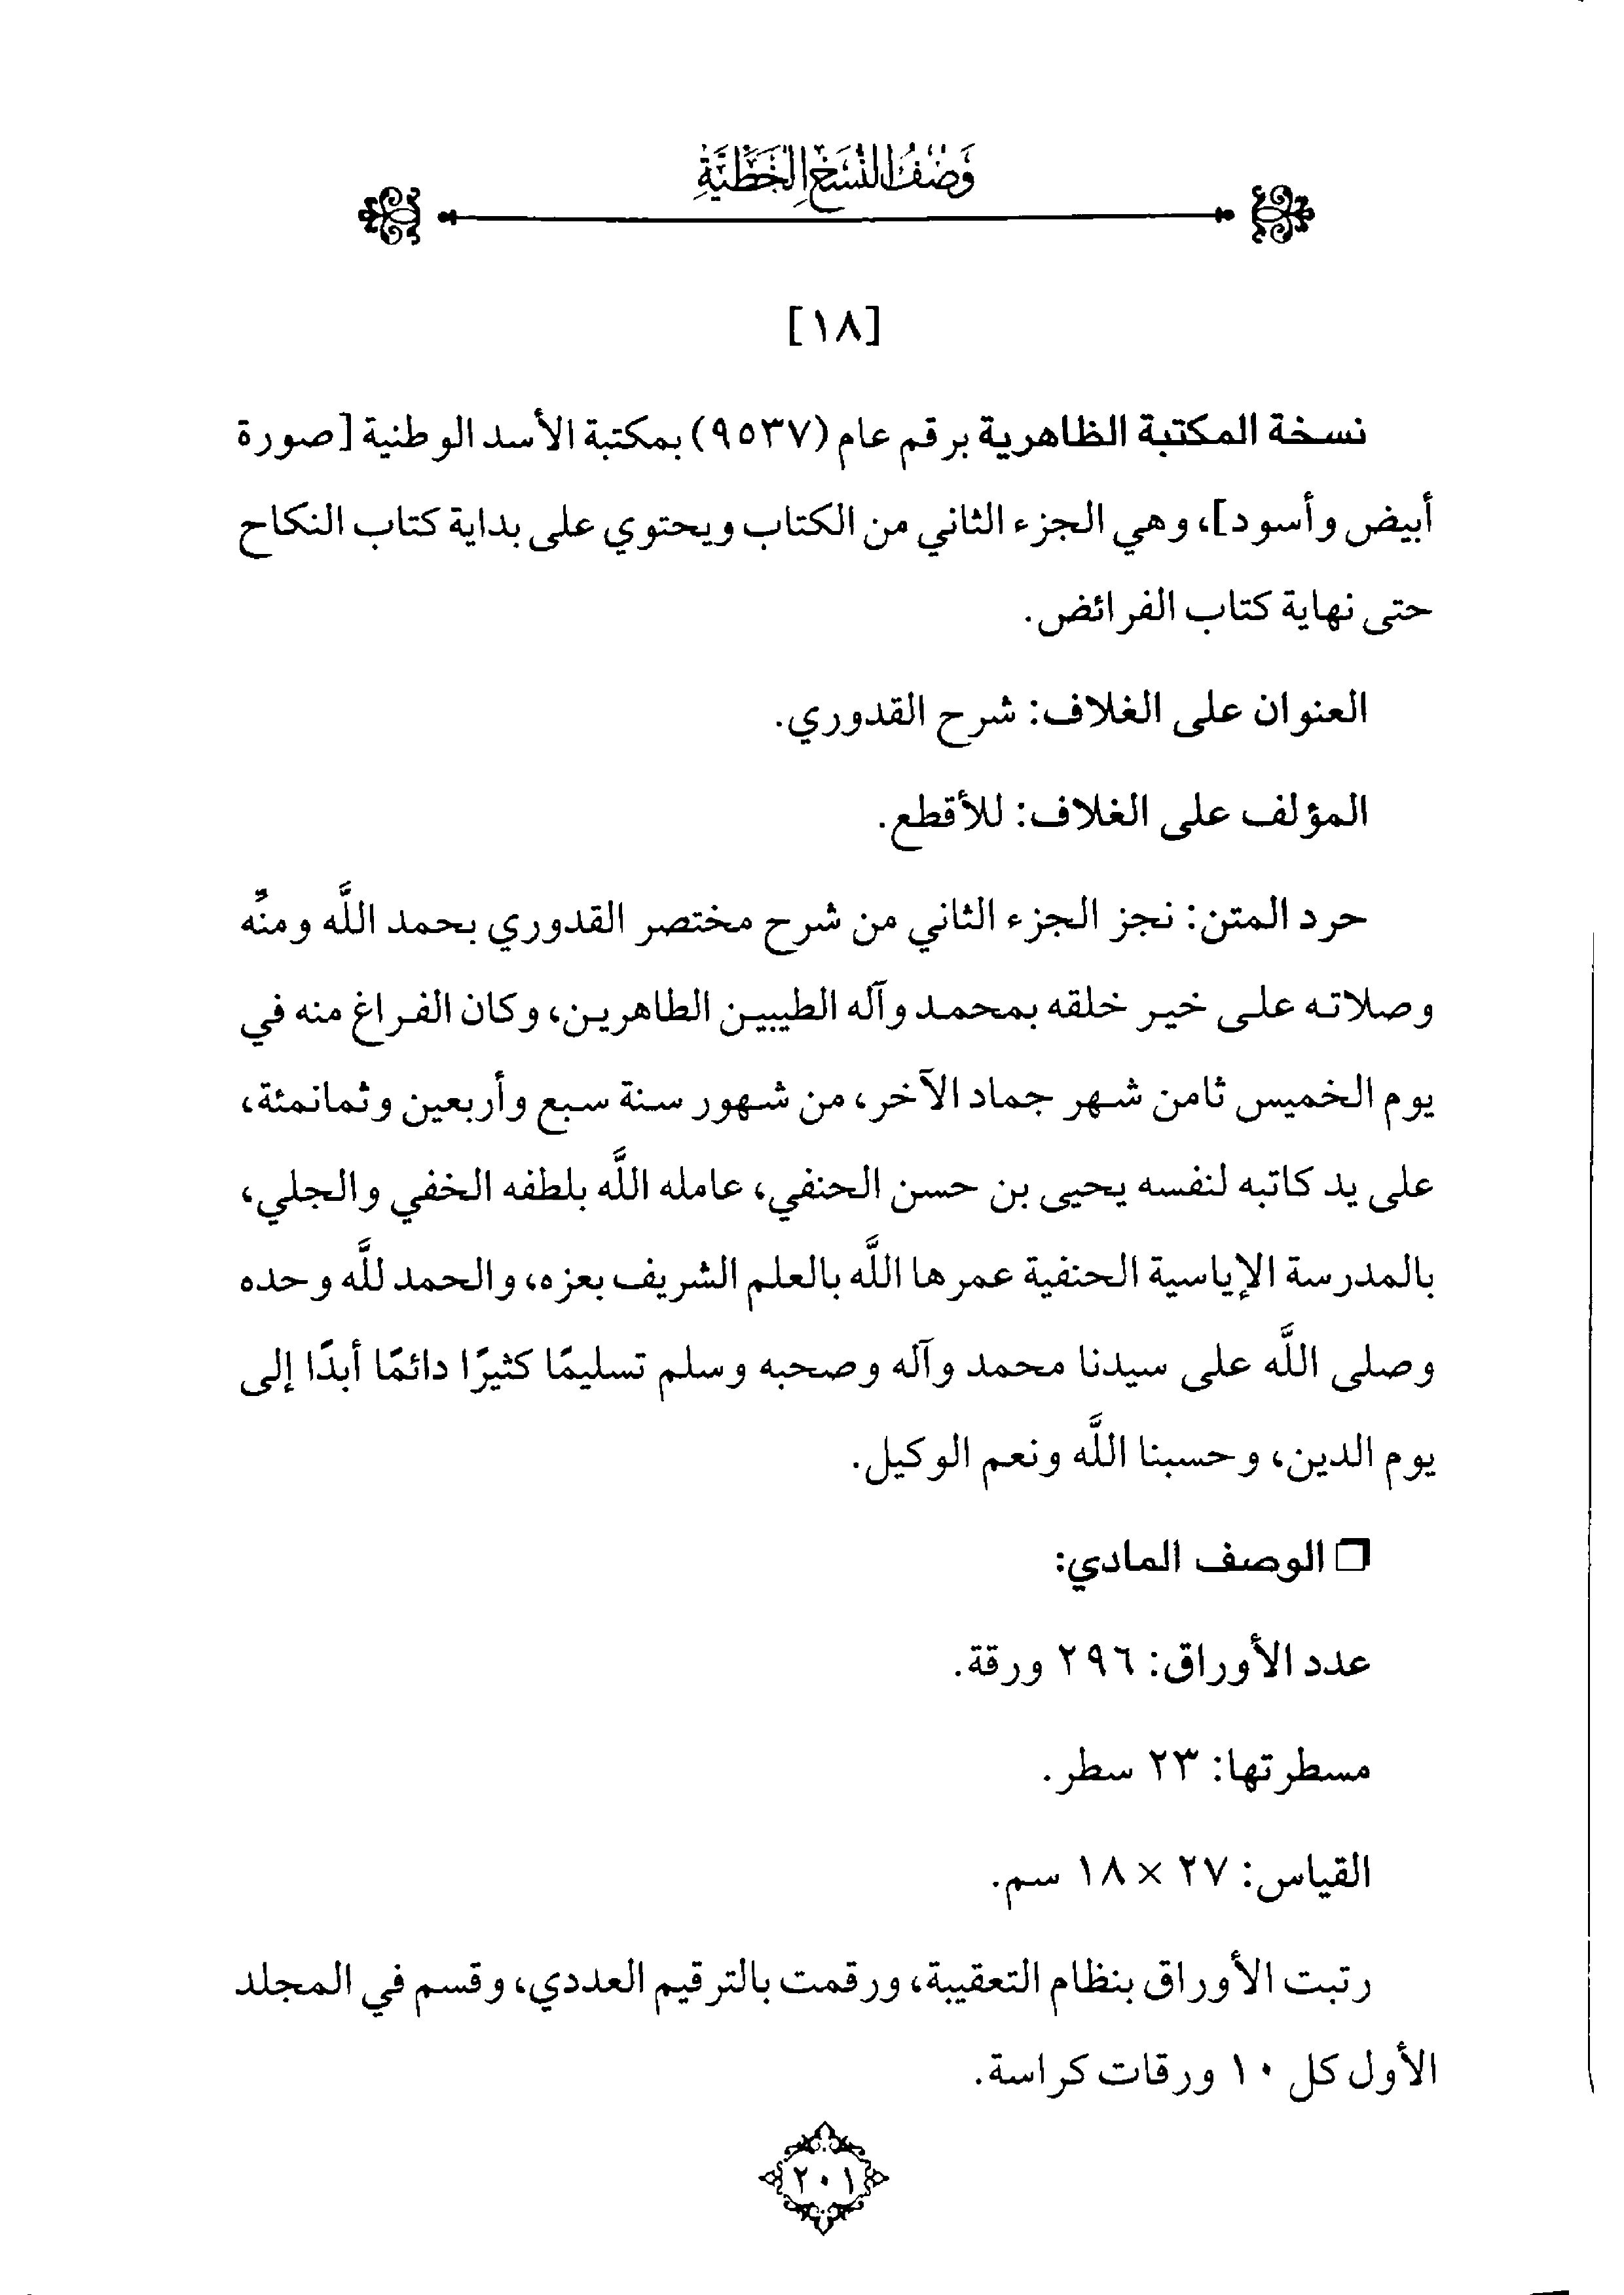 وَصْفُ النُّسَخِ الْخَطِّيَّةِ
[١٨]
نسخة المكتبة الظاهرية برقم عام (٩٥٣٧) بمكتبة الأسد الوطنية [صورة
أبيض وأسود]، وهي الجزء الثاني من الكتاب ويحتوي على بداية كتاب النكاح
حتى نهاية كتاب الفرائض.
العنوان على الغلاف: شرح القدوري.
المؤلف على الغلاف: للأقطع.
حرد المتن: نجز الجزء الثاني من شرح مختصر القدوري بحمد اللَّه ومنِّه
وصلاته على خير خلقه بمحمد وآله الطيبين الطاهرين، وكان الفراغ منه في
يوم الخميس ثامن شهر جماد الآخر، من شهور سنة سبع وأربعين وثمانمئة،
على يد كاتبه لنفسه يحيى بن حسن الحنفي، عامله اللَّه بلطفه الخفي والجلي،
بالمدرسة الإياسية الحنفية عمرها اللَّه بالعلم الشريف بعزه، والحمد للَّه وحده
وصلى اللَّه على سيدنا محمد وآله وصحبه وسلم تسليمًا كثيرًا دائمًا أبدًا إلى
يوم الدين، وحسبنا اللَّه ونعم الوكيل.
❐ الوصف المادي:
عدد الأوراق: ٢٩٦ ورقة.
مسطرتها: ٢٣ سطر.
القياس: ٢٧ × ١٨ سم.
رتبت الأوراق بنظام التعقيبة، ورقمت بالترقيم العددي، وقسم في المجلد
الأول كل ١٠ ورقات كراسة.
٢٠١